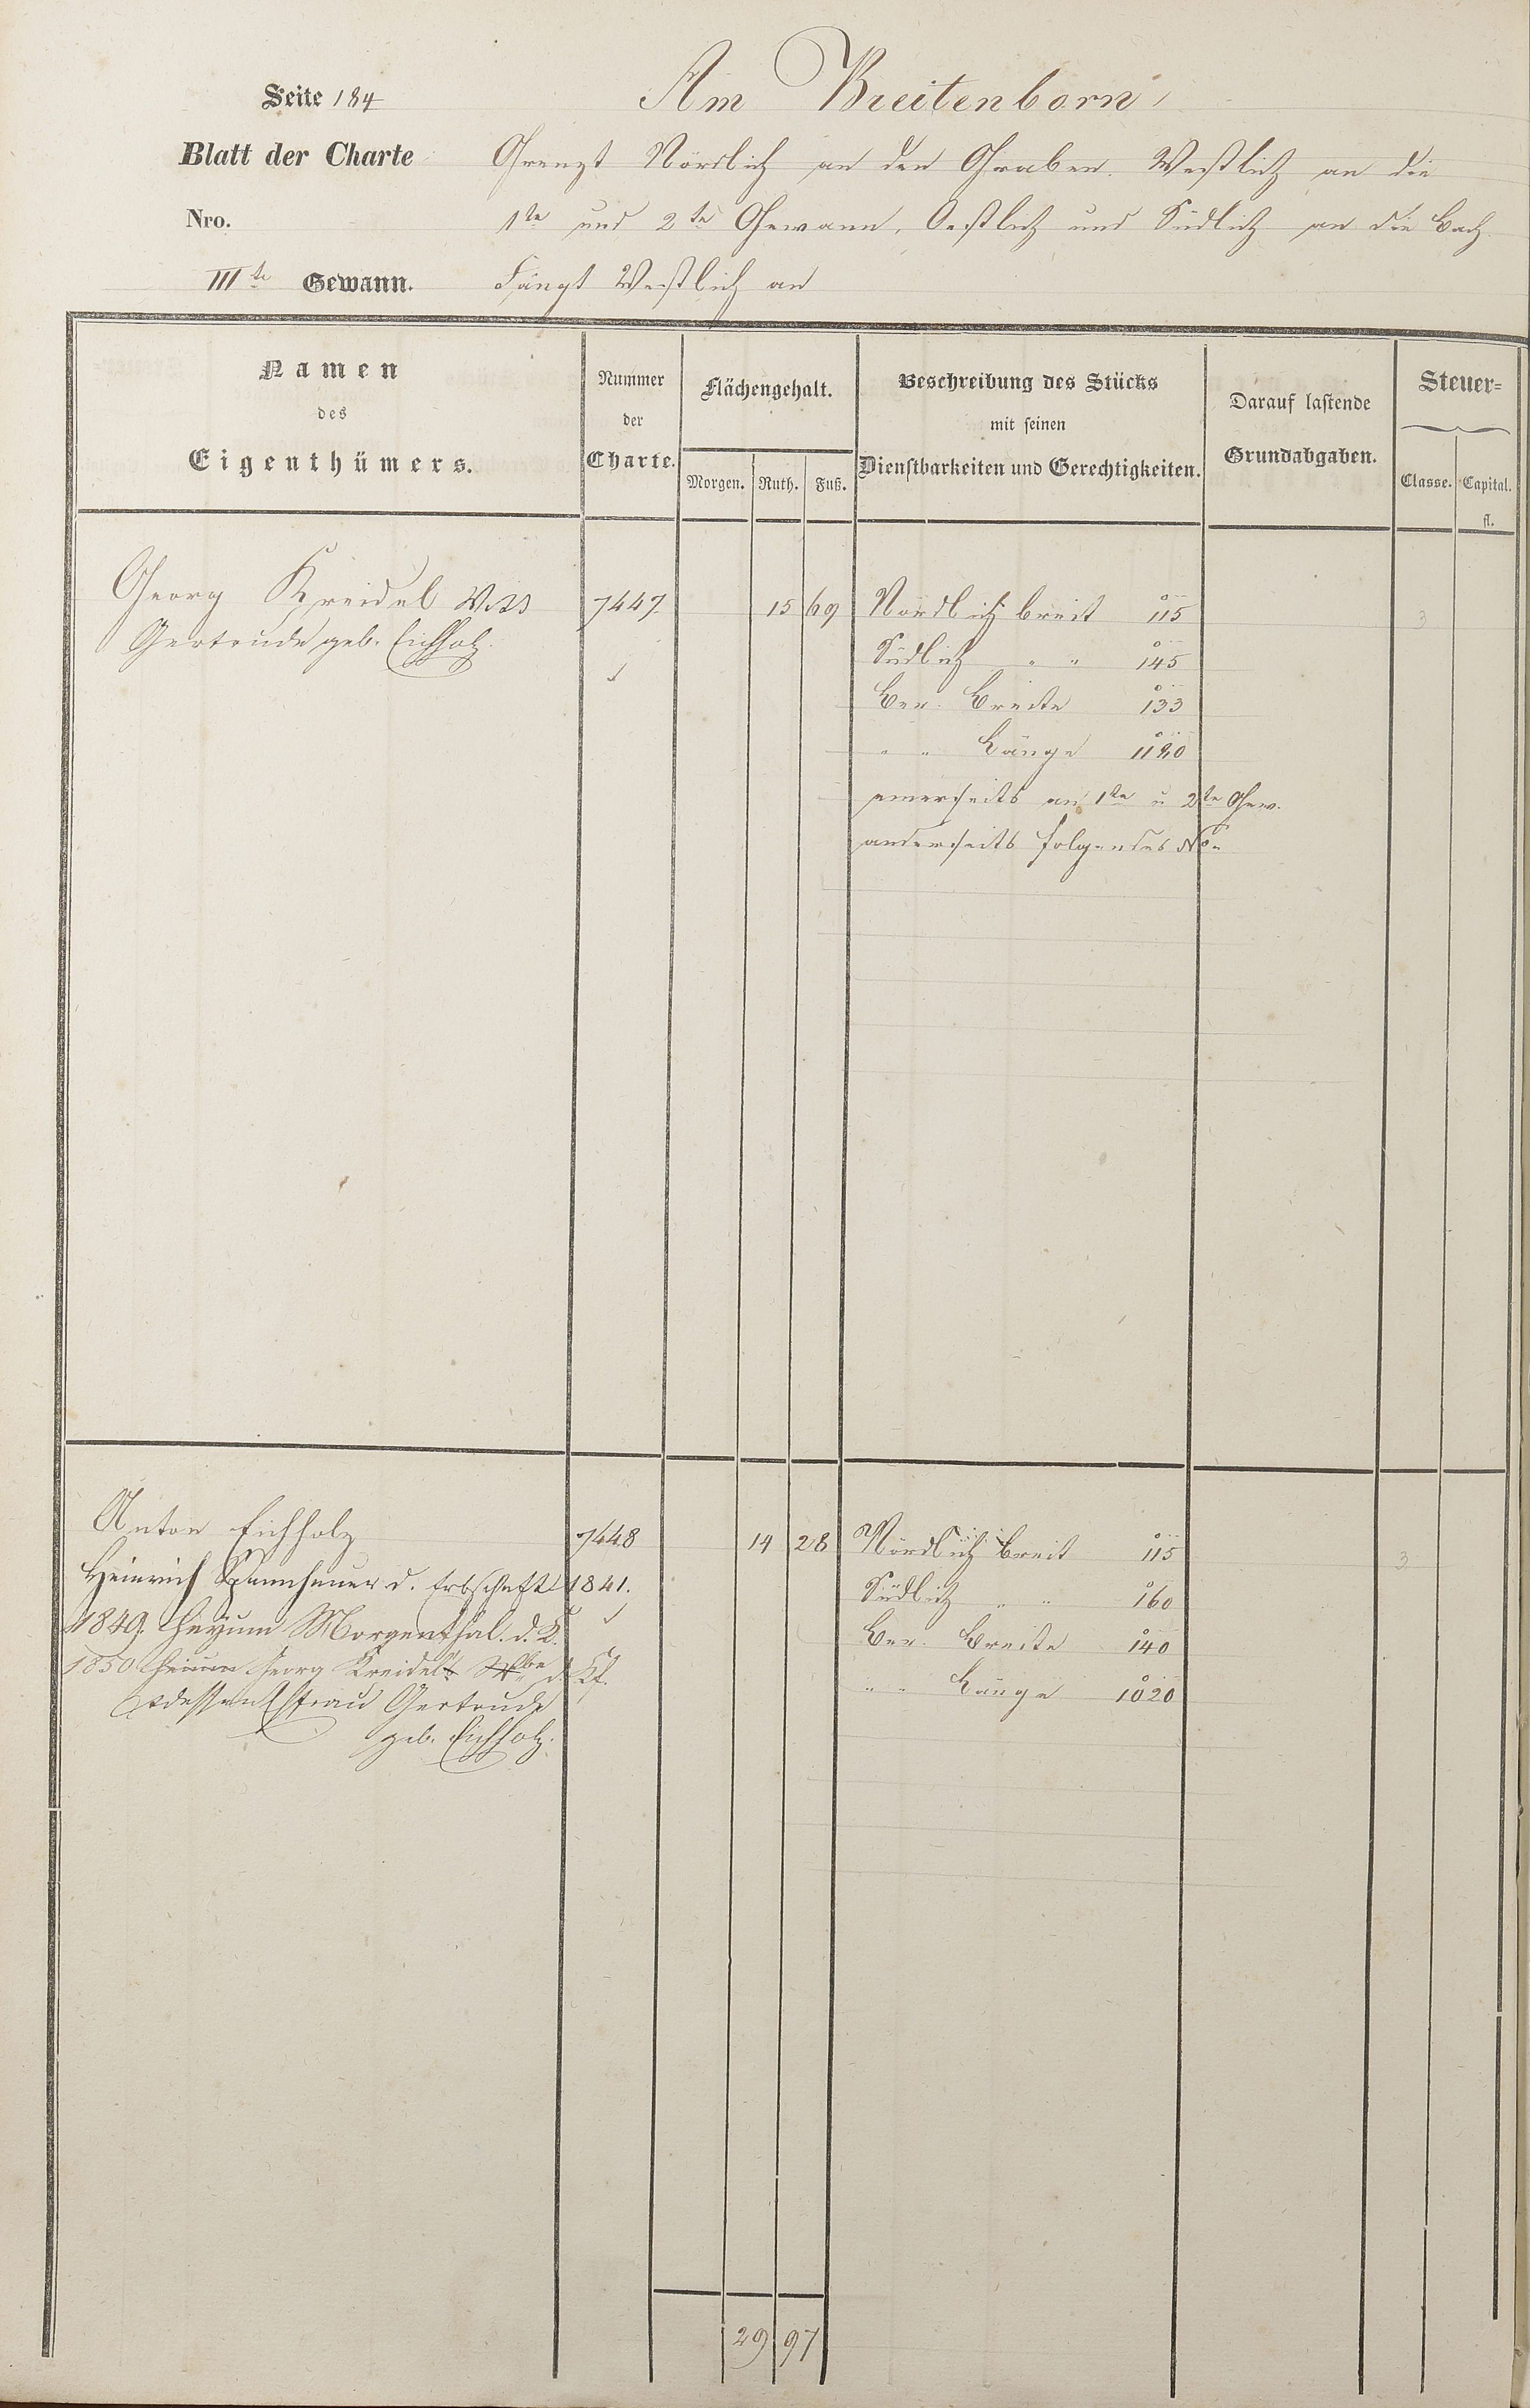 Seite 184
Am Breitenborn
Blatt der Charte
Grenzt Nördlich an den Graben. Westlich an die
Nro.
1te und 2te Gewann, Oestlich und Südlich an die Bach.
IIIte Gewann.
Fängt Westlich an
Namen
des
Eigenthümers.
Nummer
der
Charte.
Flächengehalt.
Morgen. Ruth. Fuß.
Beschreibung des Stücks
mit seinen
Dienstbarkeiten und Gerechtigkeiten.
Darauf lastende
Grundabgaben.
Steuer=
Classe. Capital.
fl.
Georg Kreidel 7447 15 69 Nördlich breit 115 3
Gertrude geb. Eichholz.
Südlich " " 145
Ber. Breite 133
" " Länge 1180
einerseits an 1te u 2te Gew.
anderseits folgendes No
Anton Eichholz 7448 14 28 Nördlich breit 115 3
Heinrich Spannheuer d. Erbschaft 1841.
Südlich " " 160
1849. Heyum Morgenthal. d. K.
Ber. Breite 140
1850 Georg Kreidel d. Kf.
" " Länge 1020
dessen Ehfrau Gertrude
geb. Eichholz.
29 97